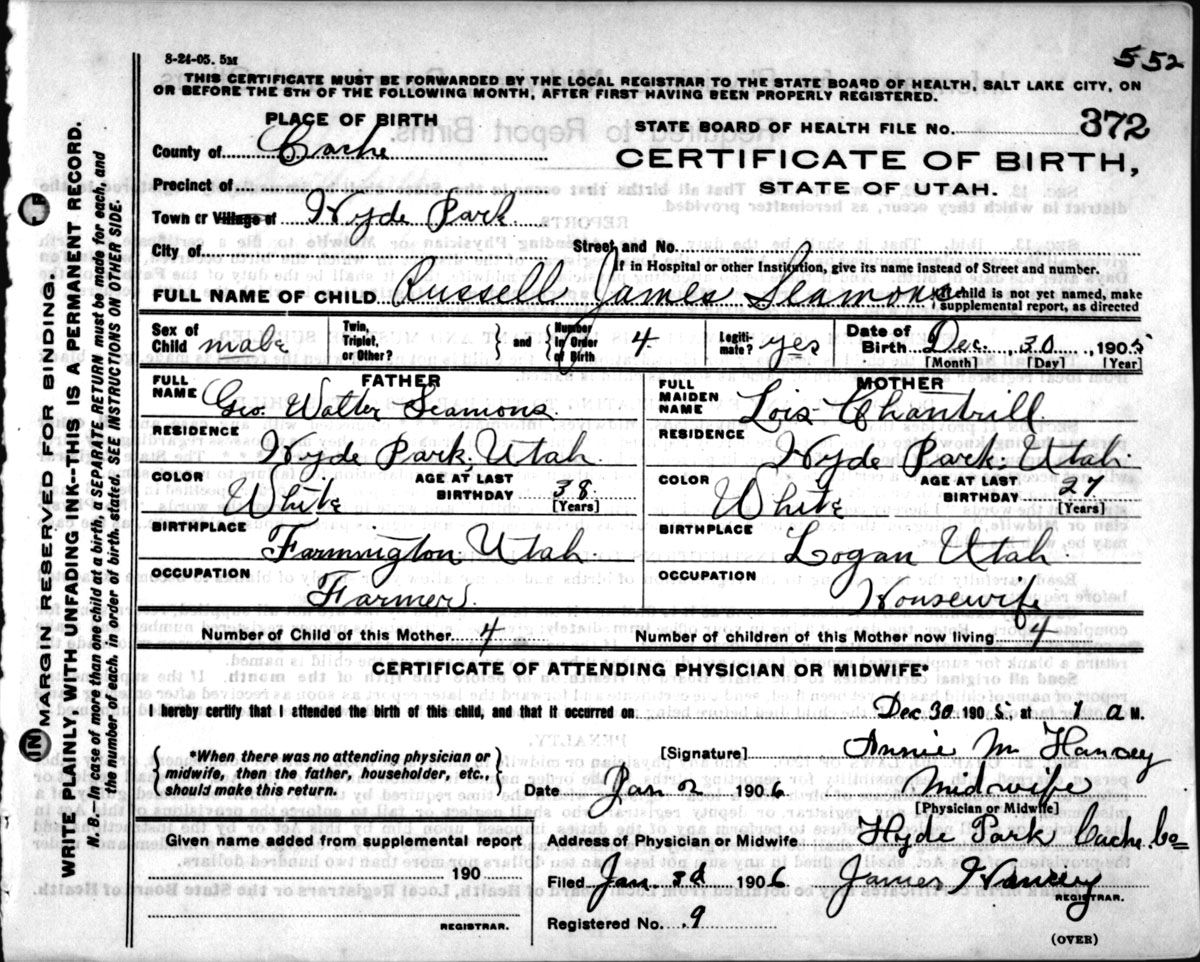 552
8-24-05. 5M
THIS CERTIFICATE MUST BE FORWARDED BY THE LOCAL REGISTRAR TO THE STATE BOARD OF HEALTH, SALT LAKE CITY, ON
OR BEFORE THE 5TH OF THE FOLLOWING MONTH, AFTER FIRST HAVING BEEN PROPERLY REGISTERED.
PLACE OF BIRTH
STATE BOARD OF HEALTH FILE NO. 372
County of Cache
CERTIFICATE OF BIRTH,
STATE OF UTAH.
Precinct of
Town or Village of Hyde Park
City of
Street and No.
If in Hospital or other Institution, give its name instead of Street and number.
FULL NAME OF CHILD Russell James Seamons
If child is not yet named, make
supplemental report, as directed
Sex of Child male
Twin, Triplet, or Other?
and Number in Order of Birth 4
Legitimate? yes
Date of Birth Dec. 30, 1905
[Month] [Day] [Year]
FATHER
FULL NAME Geo. Walter Seamons
RESIDENCE
Hyde Park, Utah
COLOR White
AGE AT LAST BIRTHDAY 38
[Years]
BIRTHPLACE
Farmington Utah
OCCUPATION
Farmer
MOTHER
FULL MAIDEN NAME Lois Chantrill
RESIDENCE
Hyde Park, Utah
COLOR White
AGE AT LAST BIRTHDAY 27
[Years]
BIRTHPLACE
Logan Utah
OCCUPATION
Housewife
Number of Child of this Mother 4
Number of children of this Mother now living 4
CERTIFICATE OF ATTENDING PHYSICIAN OR MIDWIFE*
I hereby certify that I attended the birth of this child, and that it occurred on Dec 30 1905, at 1 a M.
*When there was no attending physician or
midwife, then the father, householder, etc.,
should make this return.
[Signature] Annie M Hancey
Date Jan 2 1906
Midwife
[Physician or Midwife]
Given name added from supplemental report
190
REGISTRAR.
Address of Physician or Midwife Hyde Park Cache Co
Filed Jan 3d 1906 James Hancey
REGISTRAR.
Registered No. 9
(OVER)
IN MARGIN RESERVED FOR BINDING.
WRITE PLAINLY WITH UNFADING INK--THIS IS A PERMANENT RECORD.
N. B.—In case of more than one child at a birth, a SEPARATE RETURN must be made for each, and
the number of each, in order of birth, stated. SEE INSTRUCTIONS ON OTHER SIDE.